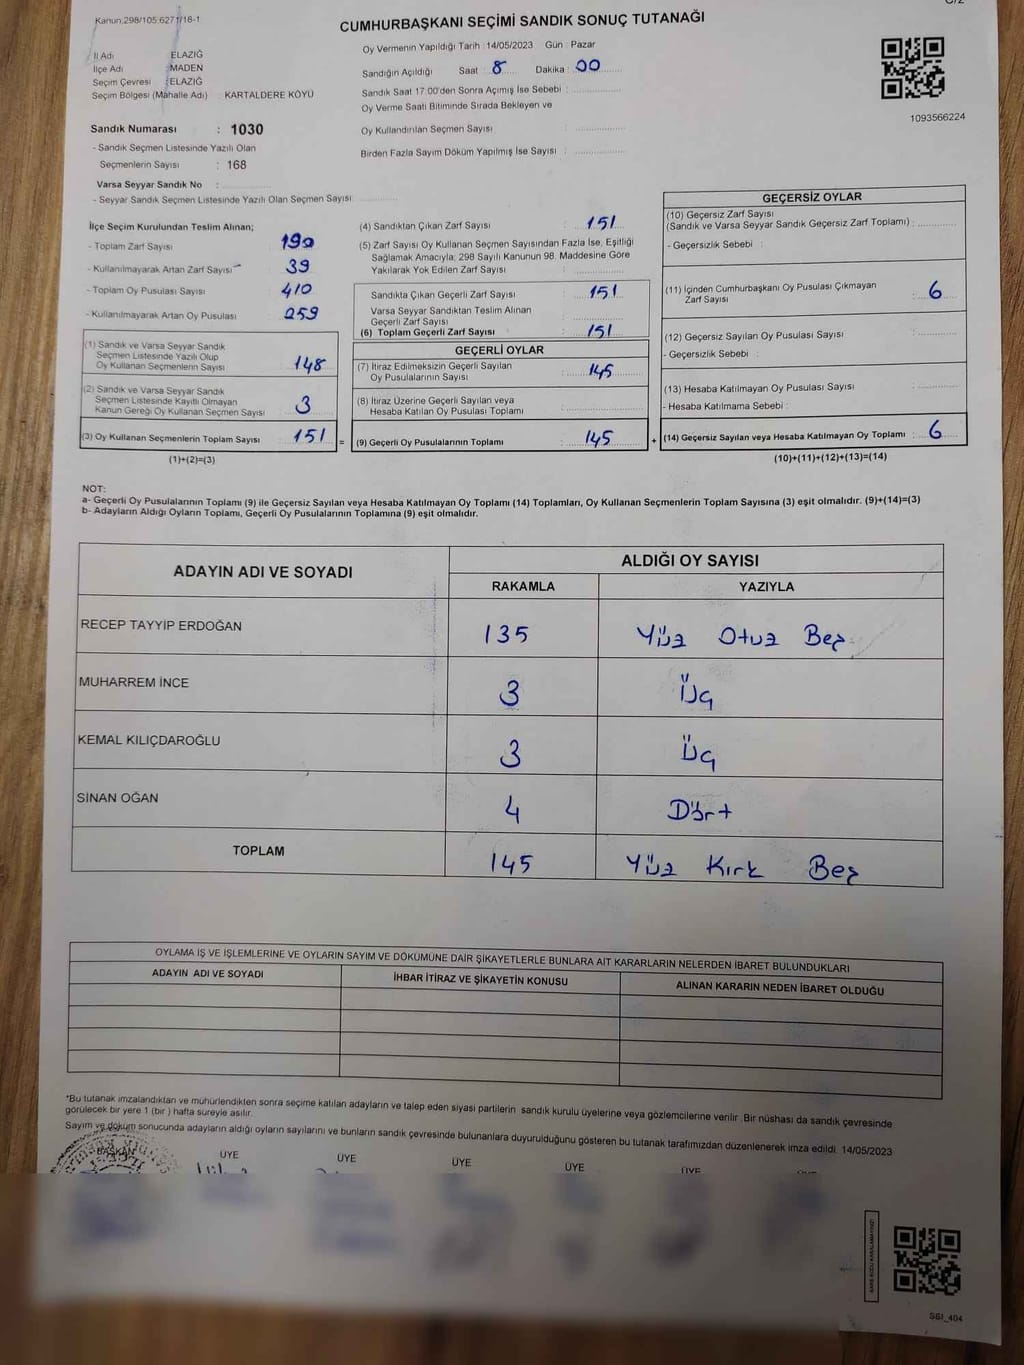 Kanun.298/105.6271/18-1
CUMHURBAŞKANI SEÇİMİ SANDIK SONUÇ TUTANAĞI
İl Adı : ELAZIĞ
İlçe Adı : MADEN
Seçim Çevresi : ELAZIĞ
Seçim Bölgesi (Mahalle Adı) : KARTALDERE KÖYÜ
Sandık Numarası : 1030
- Sandık Seçmen Listesinde Yazılı Olan
Seçmenlerin Sayısı : 168
Varsa Seyyar Sandık No :
- Seyyar Sandık Seçmen Listesinde Yazılı Olan Seçmen Sayısı:
Oy Vermenin Yapıldığı Tarih : 14/05/2023 Gün : Pazar
Sandığın Açıldığı Saat : 8 Dakika : 00
Sandık Saat 17.00'den Sonra Açımış İse Sebebi :
Oy Verme Saati Bitiminde Sırada Bekleyen ve
Oy Kullandırılan Seçmen Sayısı :
Birden Fazla Sayım Döküm Yapılmış İse Sayısı :
1093566224
İlçe Seçim Kurulundan Teslim Alınan;
- Toplam Zarf Sayısı : 190
- Kullanılmayarak Artan Zarf Sayısı : 39
- Toplam Oy Pusulası Sayısı : 410
- Kullanılmayarak Artan Oy Pusulası : 259
(1) Sandık ve Varsa Seyyar Sandık
Seçmen Listesinde Yazılı Olup
Oy Kullanan Seçmenlerin Sayısı : 148
(2) Sandık ve Varsa Seyyar Sandık
Seçmen Listesinde Kayıtlı Olmayan
Kanun Gereği Oy Kullanan Seçmen Sayısı : 3
(3) Oy Kullanan Seçmenlerin Toplam Sayısı : 151 =
(1)+(2)=(3)
(4) Sandıktan Çıkan Zarf Sayısı : 151
(5) Zarf Sayısı Oy Kullanan Seçmen Sayısından Fazla İse, Eşitliği
Sağlamak Amacıyla, 298 Sayılı Kanunun 98. Maddesine Göre
Yakılarak Yok Edilen Zarf Sayısı :
Sandıkta Çıkan Geçerli Zarf Sayısı : 151
Varsa Seyyar Sandıktan Teslim Alınan
Geçerli Zarf Sayısı :
(6) Toplam Geçerli Zarf Sayısı : 151
GEÇERLİ OYLAR
(7) İtiraz Edilmeksizin Geçerli Sayılan
Oy Pusulalarının Sayısı : 145
(8) İtiraz Üzerine Geçerli Sayılan veya
Hesaba Katılan Oy Pusulası Toplamı :
(9) Geçerli Oy Pusulalarının Toplamı : 145 +
GEÇERSİZ OYLAR
(10) Geçersiz Zarf Sayısı
(Sandık ve Varsa Seyyar Sandık Geçersiz Zarf Toplamı) :
- Geçersizlik Sebebi :
(11) İçinden Cumhurbaşkanı Oy Pusulası Çıkmayan
Zarf Sayısı : 6
(12) Geçersiz Sayılan Oy Pusulası Sayısı :
- Geçersizlik Sebebi :
(13) Hesaba Katılmayan Oy Pusulası Sayısı :
- Hesaba Katılmama Sebebi :
(14) Geçersiz Sayılan veya Hesaba Katılmayan Oy Toplamı : 6
(10)+(11)+(12)+(13)=(14)
NOT:
a- Geçerli Oy Pusulalarının Toplamı (9) ile Geçersiz Sayılan veya Hesaba Katılmayan Oy Toplamı (14) Toplamları, Oy Kullanan Seçmenlerin Toplam Sayısına (3) eşit olmalıdır. (9)+(14)=(3)
b- Adayların Aldığı Oyların Toplamı, Geçerli Oy Pusulalarının Toplamına (9) eşit olmalıdır.
ADAYIN ADI VE SOYADI ALDIĞI OY SAYISI
RAKAMLA YAZIYLA
RECEP TAYYİP ERDOĞAN 135 Yüz Otuz Beş
MUHARREM İNCE 3 Üç
KEMAL KILIÇDAROĞLU 3 Üç
SİNAN OĞAN 4 Dört
TOPLAM 145 Yüz Kırk Beş
OYLAMA İŞ VE İŞLEMLERİNE VE OYLARIN SAYIM VE DÖKÜMÜNE DAİR ŞİKAYETLERLE BUNLARA AİT KARARLARIN NELERDEN İBARET BULUNDUKLARI
ADAYIN ADI VE SOYADI İHBAR İTİRAZ VE ŞİKAYETİN KONUSU ALINAN KARARIN NEDEN İBARET OLDUĞU
*Bu tutanak imzalandıktan ve mühürlendikten sonra seçime katılan adayların ve talep eden siyasi partilerin sandık kurulu üyelerine veya gözlemcilerine verilir. Bir nüshası da sandık çevresinde
görülecek bir yere 1 (bir) hafta süreyle asılır.
Sayım ve döküm sonucunda adayların aldığı oyların sayılarını ve bunların sandık çevresinde bulunanlara duyurulduğunu gösteren bu tutanak tarafımızdan düzenlenerek imza edildi. 14/05/2023
BAŞKAN ÜYE ÜYE ÜYE ÜYE ÜYE
SSI_404